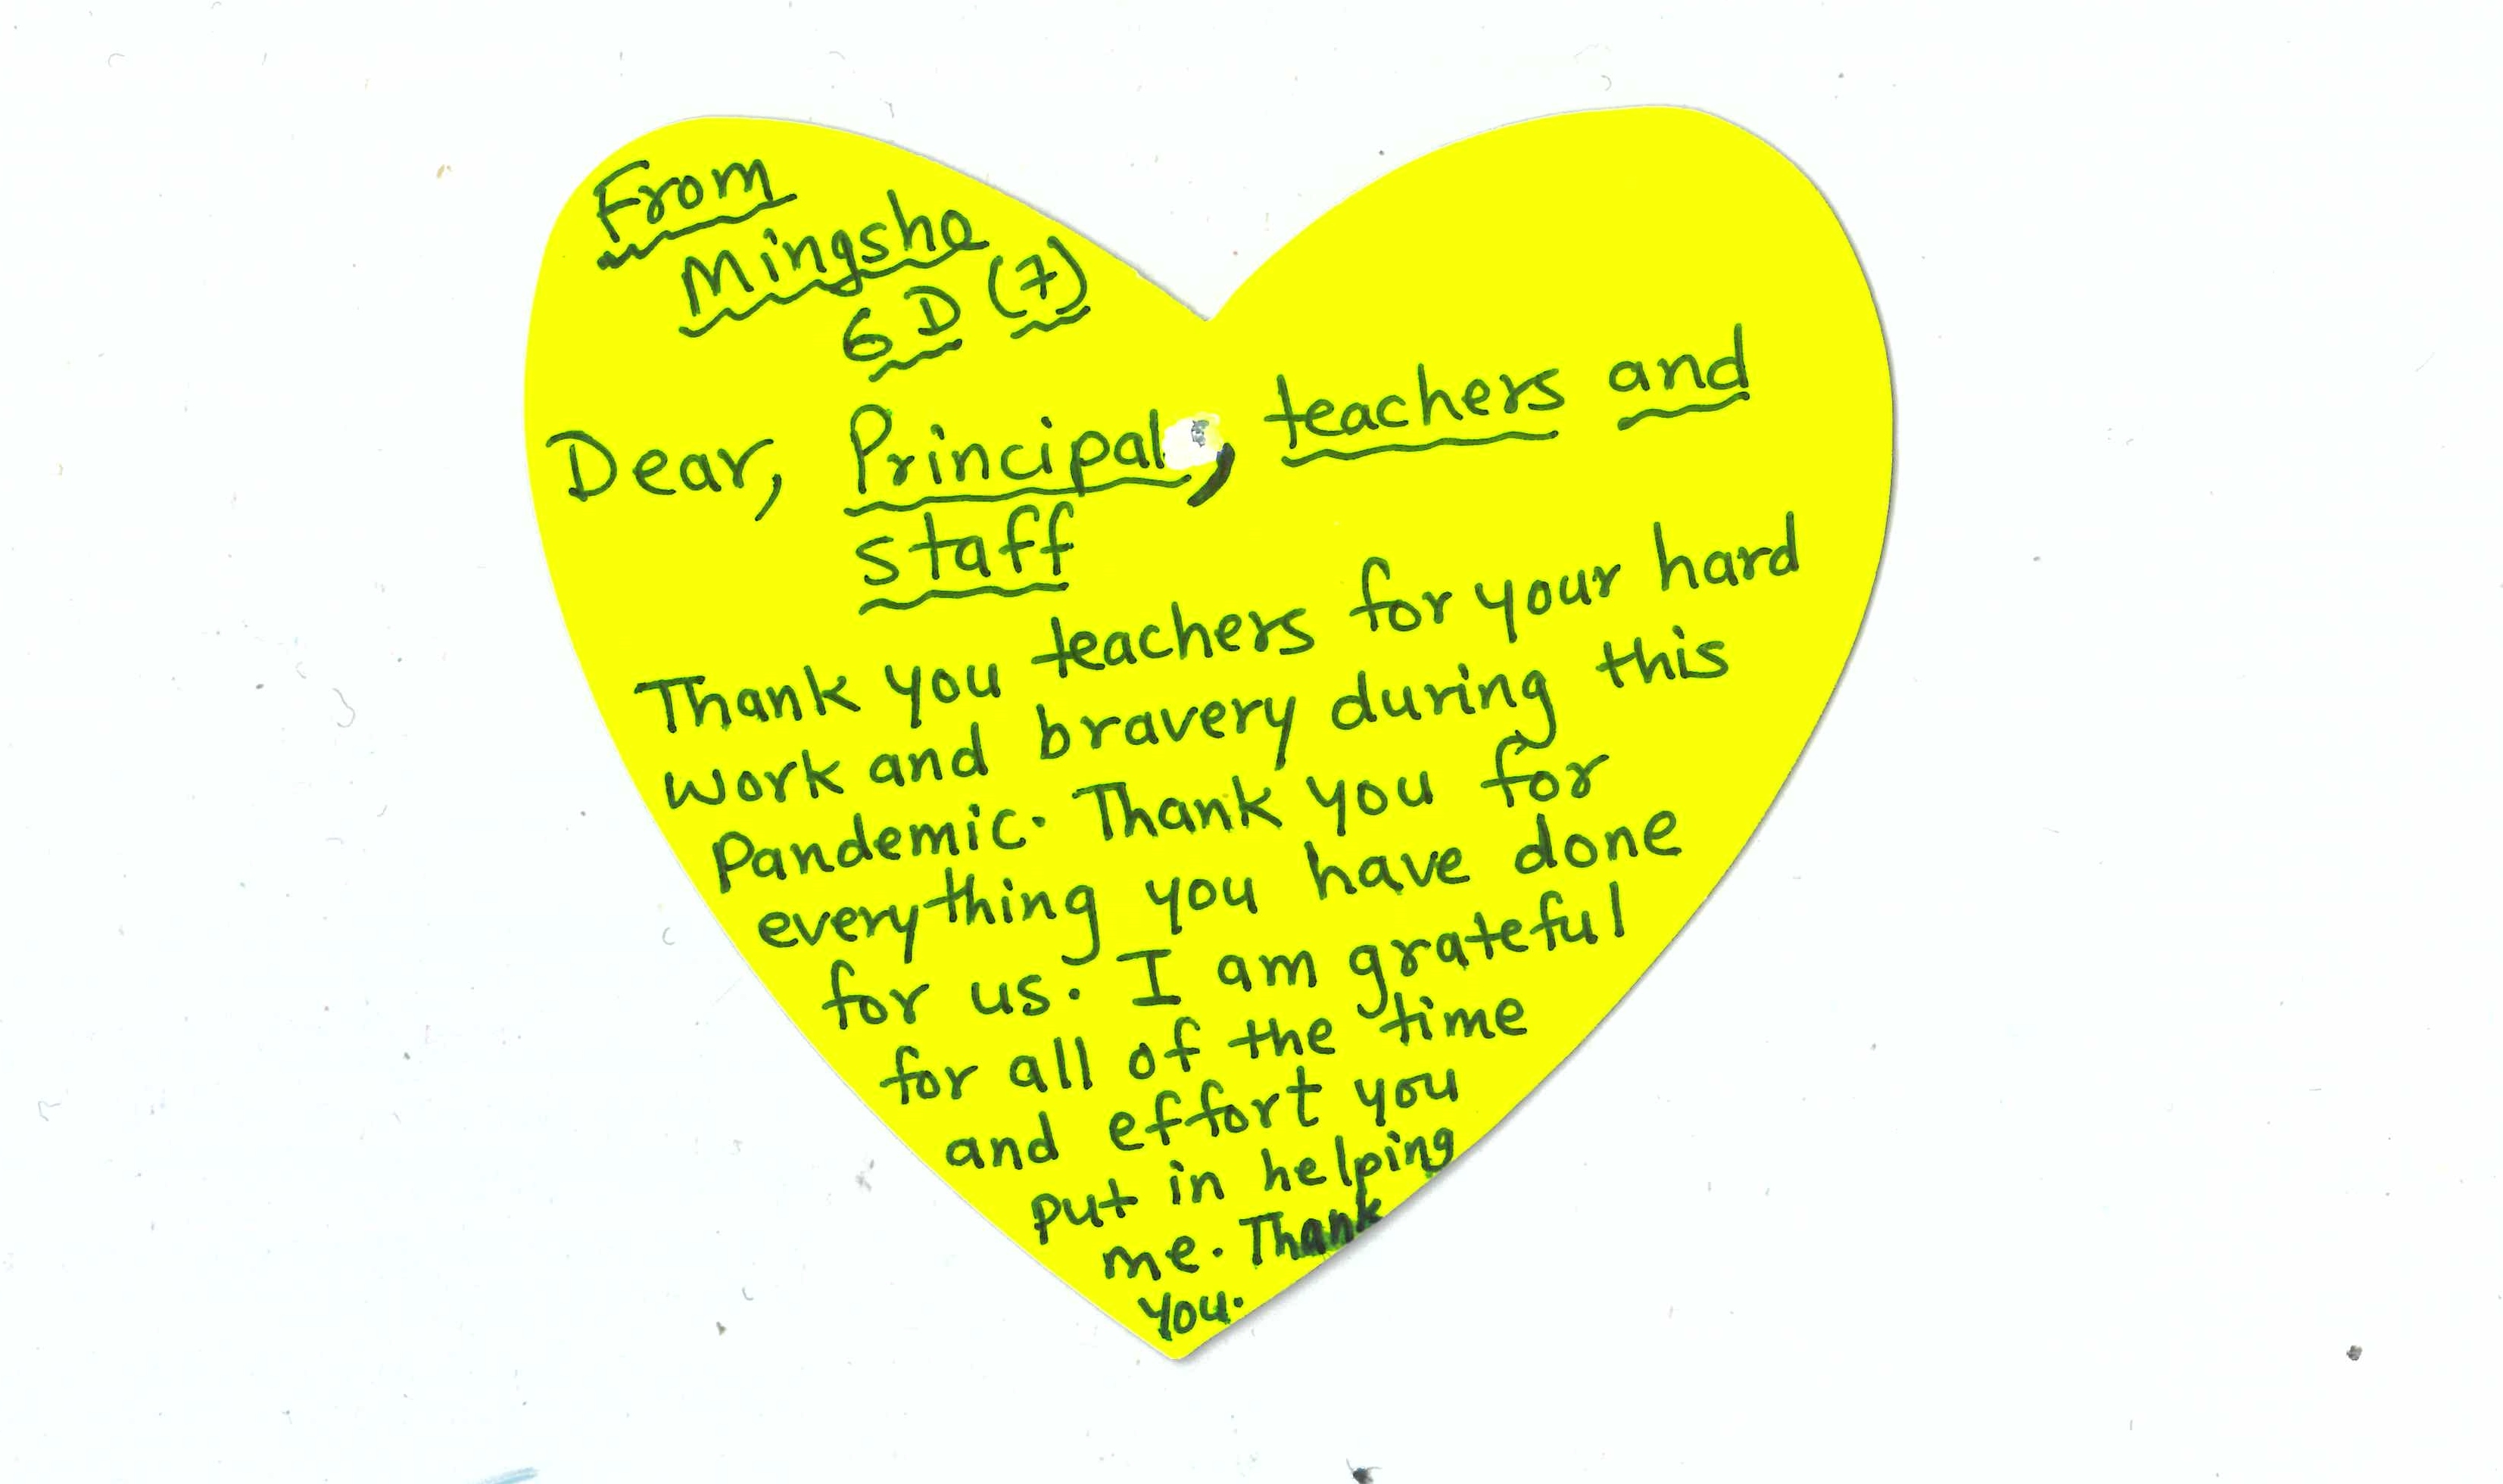 From
Mingsha
6D (7)
Dear, Principal, teachers and
staff
Thank you teachers for your hard
work and bravery during this
Pandemic. Thank you for
everything you have done
for us. I am grateful
for all of the time
and effort you
put in helping
me. Thank
you.